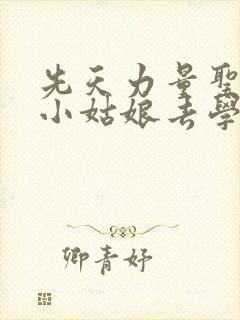 先天力量聖
小姑娘去學
卿青妤